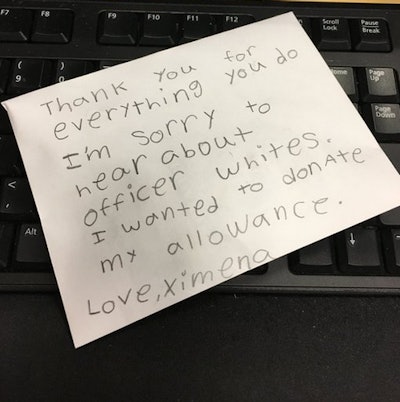 F7 F8 F9 F10 F11 F12 Scroll Lock Pause Break
Thank you for
everything you do
I'm sorry to
hear about
officer whites.
I wanted to donate
my allowance.
Love, Ximena
Page Up
Page Down
9
)
<
,
Alt